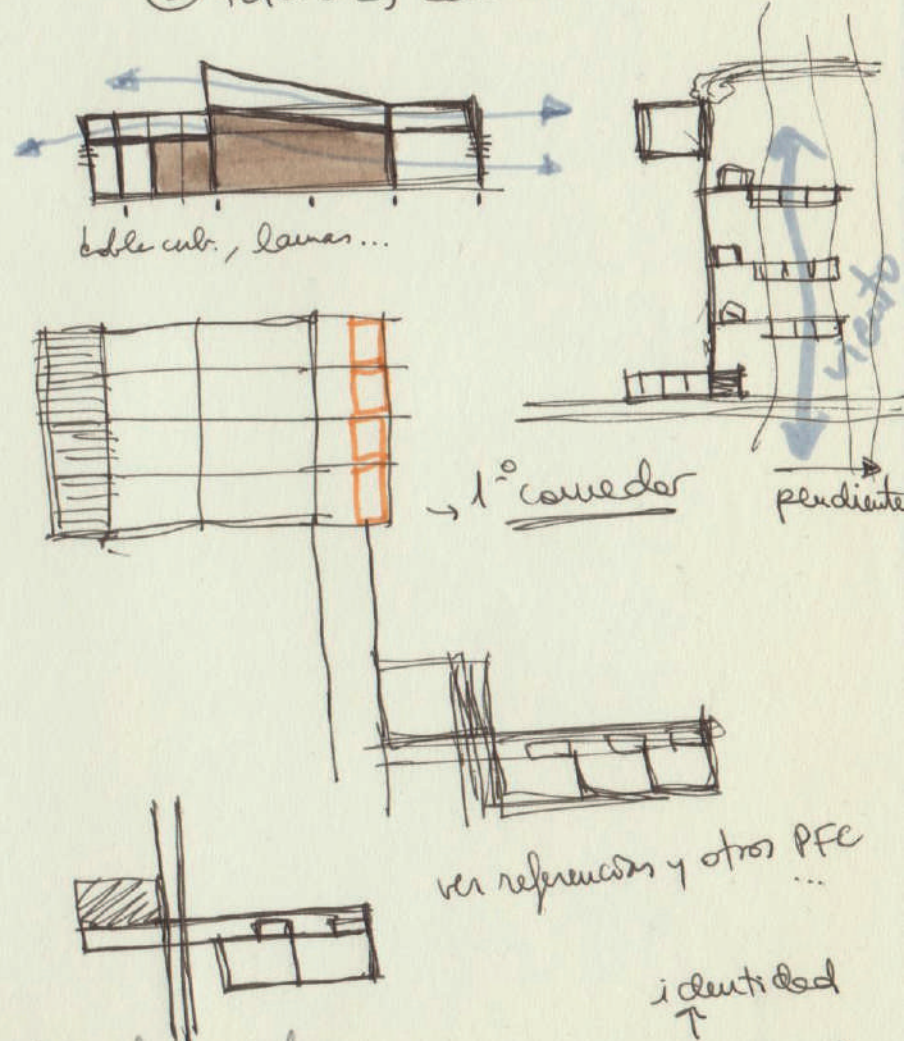 doble cub., lamas...
viento
→ 1º comedor
pendiente
ver referencias y otros PFC
...
identidad